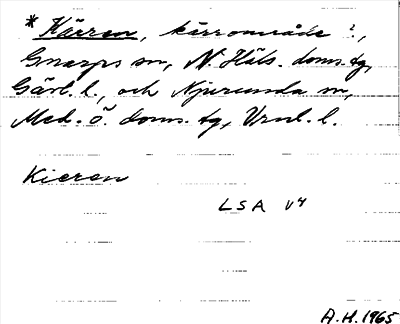 *Kärren, kärrområde i
Gnarps sn, N. Häls. doms. tg,
Gävl. l., och Njurunda sn,
Med. ö. doms. tg, Vrnl. l.
Kieren
LSA V4
A.H. 1965